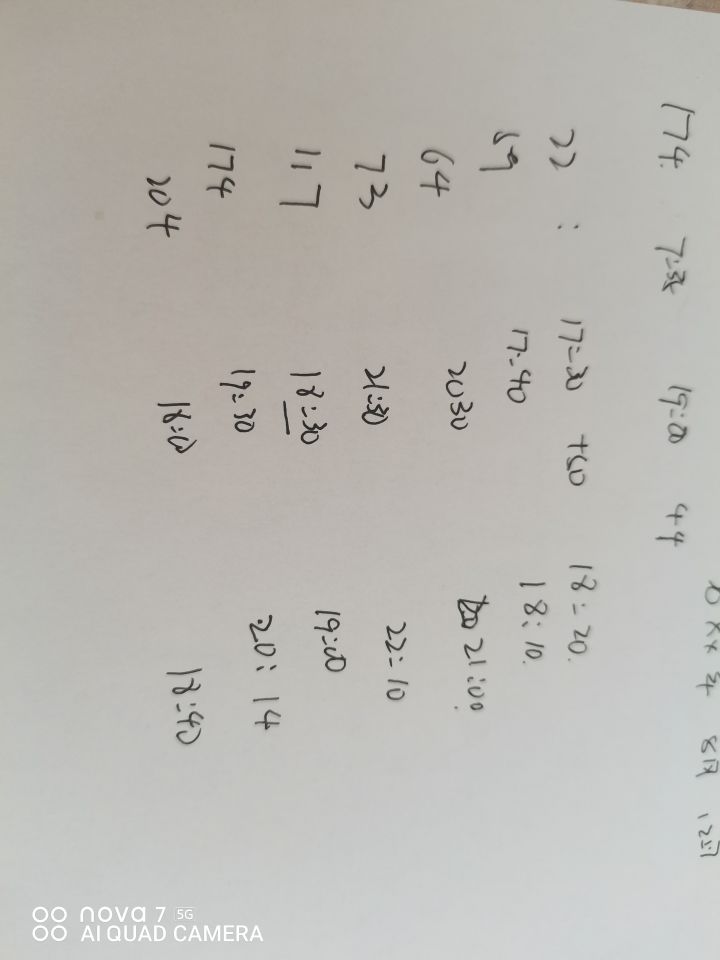 年 8月 12日
174. 7:35 19:00 44
22 : 17:30 +50 18:20.
59 17:40 18:10.
64 2030 21:00.
73 21:30 22:10
117 18:30 19:00
174 19:30 20:14
204 18:00 18:40
nova 7 5G
AI QUAD CAMERA